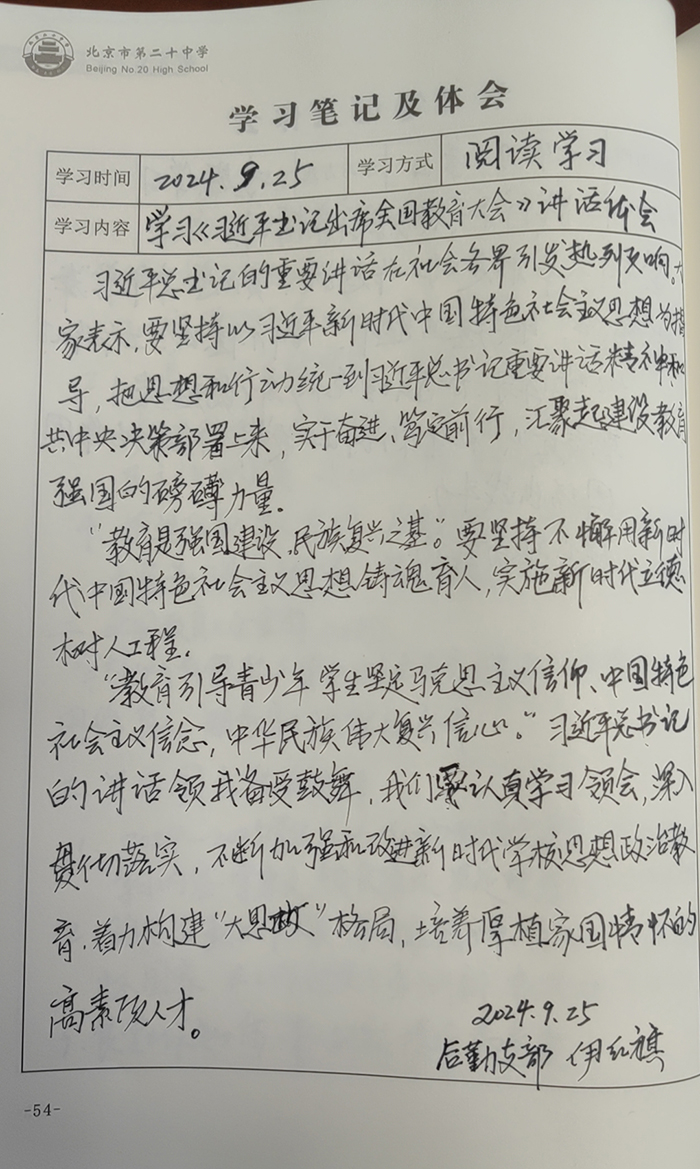 北京市第二十中学
Beijing No.20 High School
学习笔记及体会
学习时间 2024.9.25 学习方式 阅读学习
学习内容 学习《习近平书记出席全国教育大会》讲话体会
习近平总书记的重要讲话在社会各界引发热烈反响。大
家表示,要坚持以习近平新时代中国特色社会主义思想为指
导,把思想和行动统一到习近平总书记重要讲话精神和
共中央决策部署上来,实干奋进、笃定前行,汇聚起建设教育
强国的磅礴力量。
“教育是强国建设、民族复兴之基。”要坚持不懈用新时
代中国特色社会主义思想铸魂育人,实施新时代立德
树人工程。
“教育引导青少年学生坚定马克思主义信仰、中国特色
社会主义信念,中华民族伟大复兴信心。”习近平总书记
的讲话领我备受鼓舞,我们要认真学习领会,深入
贯彻落实,不断加强和改进新时代学校思想政治教
育,着力构建“大思政”格局,培养厚植家国情怀的
高素质人才。
2024.9.25
后勤支部 伊红旗
-54-